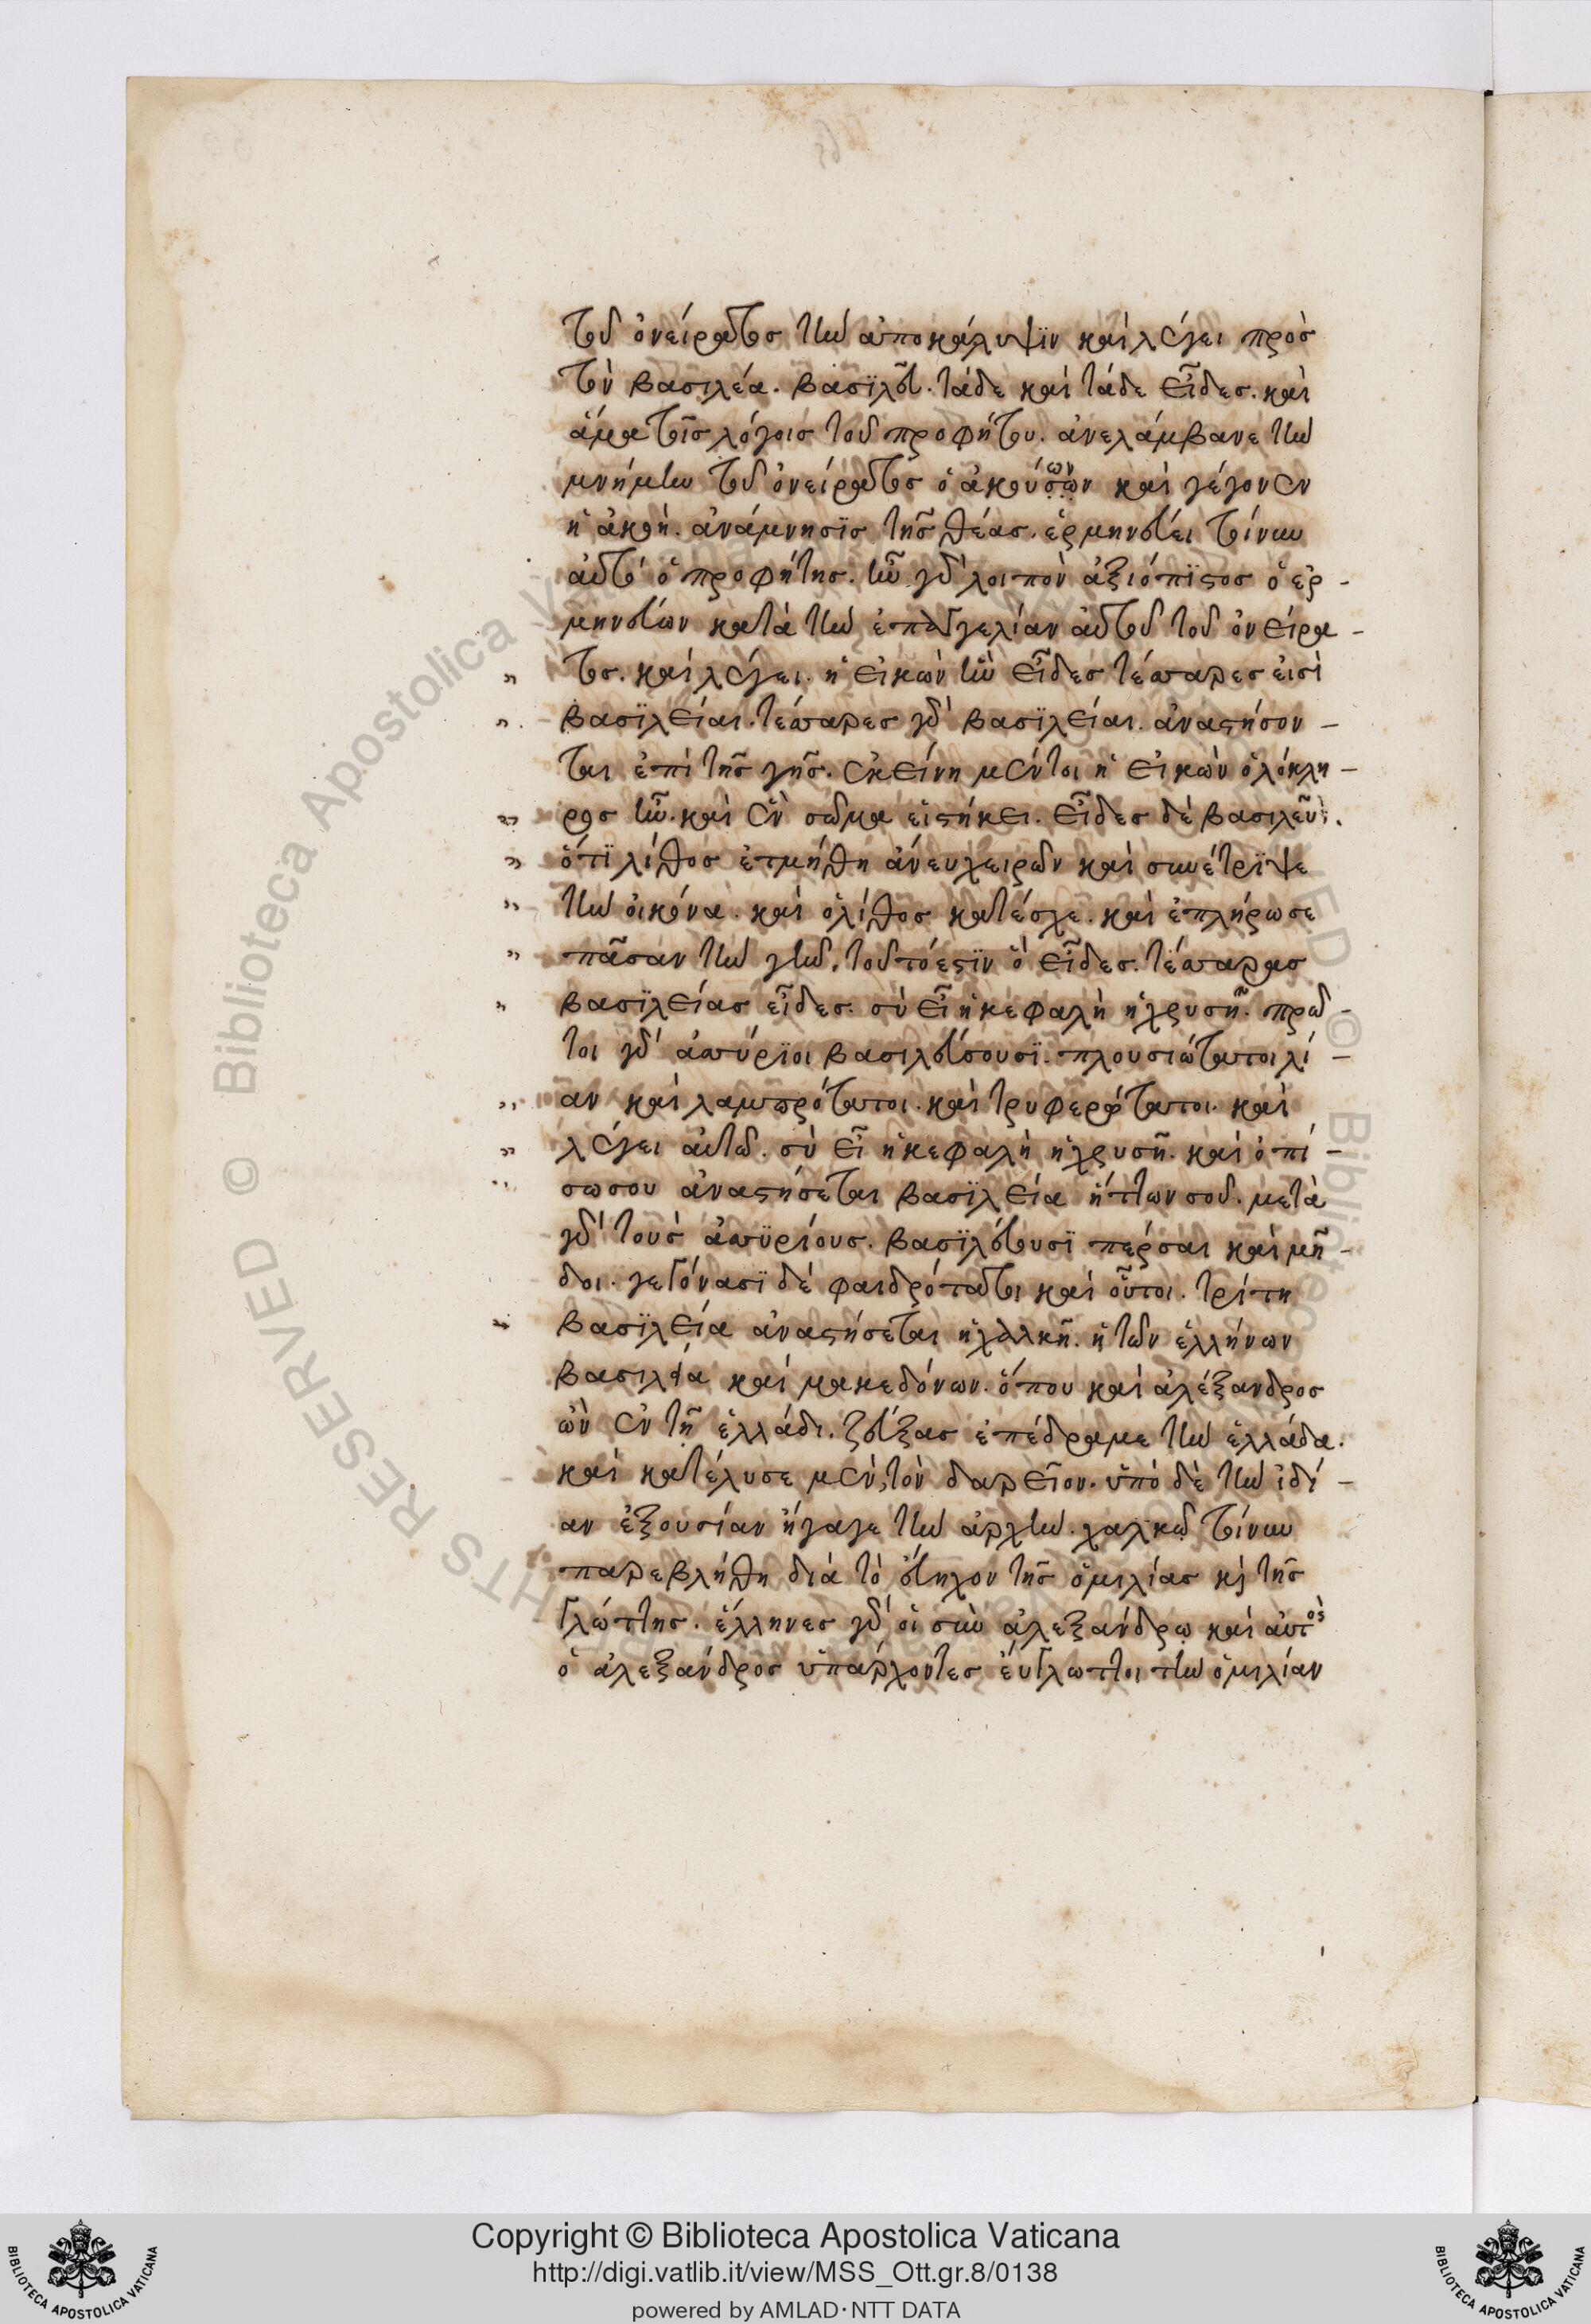 τοῦ ὀνείρατος τὴν ἀποκάλυψϊν καὶ λέγει πρὸς
τὸν βασιλέα. βασϊλεῦ. τάδε καὶ τάδε εἶδες. καὶ
ἅμα τοῖς λόγοις τοῦ προφήτου. ἀνελάμβανε τὴν
μνήμην τοῦ ὀνείρατος ὁ ἀκούσων καὶ γέγονεν
ἡ ἀκοὴ. ἀνάμνησϊς τῆς θέας. ἑρμηνεύει τοίνυν
αὐτὸ ὁ προφήτης. ἦν γὰρ λοιπὸν ἀξιόπϊστος ὁ ἑρ-
μηνεύων κατὰ τὴν ἐπαγγελίαν αὐτοῦ τοῦ ὀνείρα-
τος. καὶ λέγει. ἡ εἰκὼν ἣν εἶδες τέσσαρες εἰσὶ
βασϊλεῖαι. τέσσαρες γὰρ βασϊλείαι. ἀναστήσον-
ται ἐπὶ τῆς γῆς. ἐκείνη μέντοι ἡ εἰκὼν ὁλόκλη-
ρος ἦν. καὶ ἓν σῶμα εἱστήκει. εἶδες δὲ βασιλεῦ.
ὅτϊ λίθος ἐτμήθη ἄνευ χειρῶν καὶ συνέτρϊψε
τὴν οἰκόνα. καὶ ὁ λίθος κατέσχε. καὶ ἐπλήρωσε
πᾶσαν τὴν γῆν. τοῦτό ἐστϊν ὃ εἶδες. τέσσαρας
βασϊλείας εἶδες. σὺ εἶ ἡ κεφαλὴ ἡ χρυσῆ. πρῶ-
τοι γὰρ ἀσσύριοι βασιλεύσουσϊ. πλουσιώτατοι λί-
αν καὶ λαμπρότατοι. καὶ τρυφερώτατοι. καὶ
λέγει αὐτῶ. σὺ εἶ ἡ κεφαλὴ ἡ χρυσῆ. καὶ ὀπί-
σω σου ἀναστήσεται βασϊλεία ἥττων σοῦ. μετὰ
γὰρ τοὺς ἀσσϋρίους. βασϊλεύουσϊ πέρσαι καὶ μῆ-
δοι. γεγόνασϊ δὲ φαιδρότατοι καὶ οὗτοι. τρίτη
βασϊλεία ἀναστήσεται ἡ χαλκῆ. ἡ τῶν ἑλλήνων
βασιλεία καὶ μακεδόνων. ὅπου καὶ ἀλέξανδρος
ὢν ἐν τῇ ἑλλάδι. ζεύξας ἐπέδραμε τὴν ἑλλάδα.
καὶ κατέλυσε μὲν τὸν δαρεῖον. ὑπὸ δὲ τὴν ἰδί-
αν ἐξουσίαν ἤγαγε τὴν ἀρχὴν. χαλκῷ τοίνυν
παρεβλήθη διὰ τὸ εὔηχον τῆς ὁμιλίας κὶ τῆς
γλώττης. ἕλληνες γὰρ οἱ σὺν ἀλεξάνδρῳ καὶ αὐτὸς
ὁ ἀλεξάνδρος ὑπάρχοντες εὔγλωττοι τὴν ὁμιλίαν
Copyright © Biblioteca Apostolica Vaticana
http://digi.vatlib.it/view/MSS_Ott.gr.8/0138
powered by AMLAD·NTT DATA